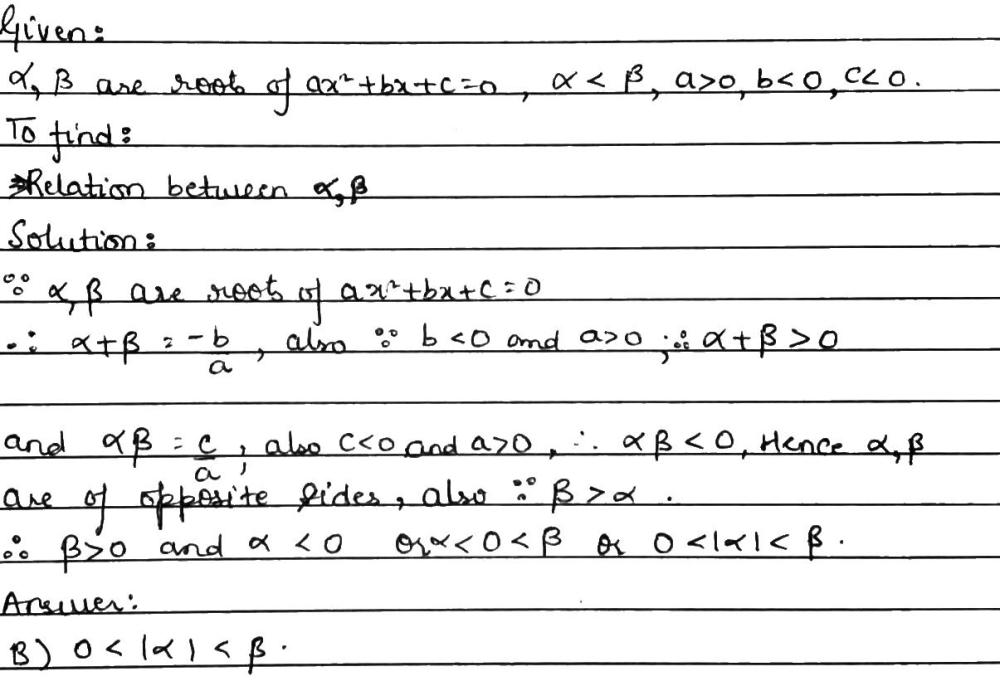 Given:
α, β are roots of ax²+bx+c=0, α < β, a>0, b<0, c<0.
To find:
Relation between α,β
Solution:
∵ α, β are roots of ax²+bx+c=0
∴ α+β = -b/a, also ∵ b<0 and a>0 ;∴ α+β>0
and αβ = c/a, also c<0 and a>0, ∴ αβ<0, Hence α,β
are of opposite sides, also ∵ β>α.
∴ β>0 and α <0 or α<0<β or 0<|α|<β.
Answer:
B) 0<|α|<β.